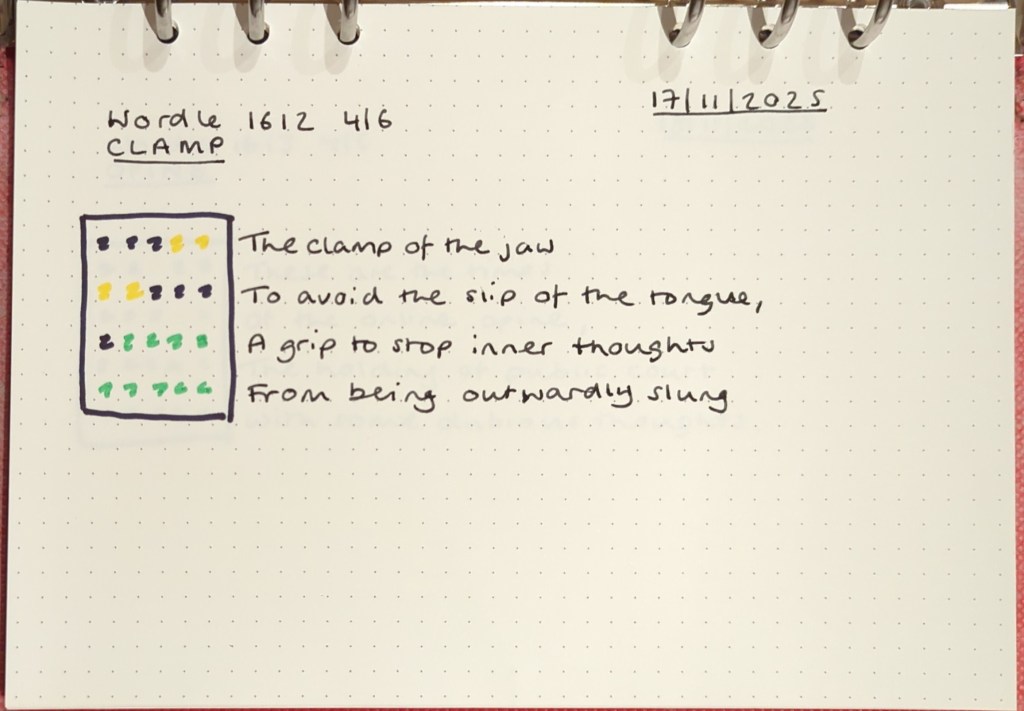 17/11/2025
Wordle 1612 4/6
CLAMP
The clamp of the jaw
To avoid the slip of the tongue,
A grip to stop inner thoughts
From being outwardly slung